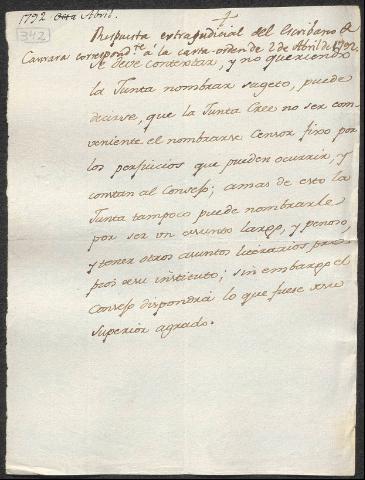 1792 Abril.
342
Respuesta extrajudicial del Escribano de
Camara correspond.te a la carta-orden de 2 de Abril de 1792.
Se deve contextar, y no queriendo
la Junta nombrar sugeto, puede
decirse, que la Junta Cree no ser con
veniente el nombrarse Censor fixo por
los perjuicios que pueden ocurrir, y
constan al Consejo; amas de esto la
Junta tampoco puede nombrarle
por ser un asunto largo, y penoso,
y tener otros asuntos literarios pro
pios de su instituto; sin embargo el
Consejo dispondrá lo que fuese de su
Superior agrado.